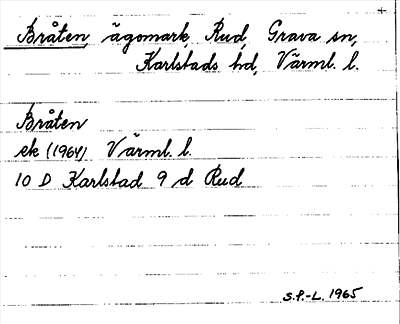 +
Bråten, ägomark, Rud, Grava sn,
Karlstads hd, Värml. l.
Bråten
ek (1964) Värml. l.
10 D Karlstad 9 d Rud
S.P.-L. 1965